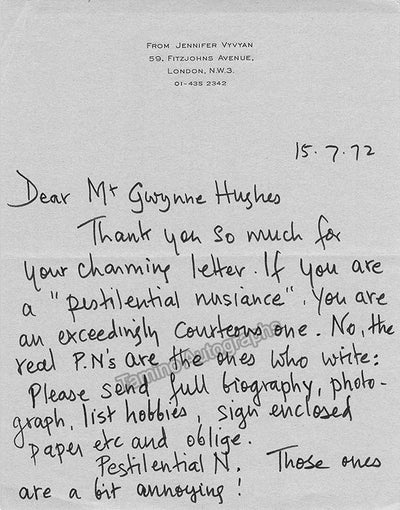 FROM JENNIFER VYVYAN
59, FITZJOHNS AVENUE,
LONDON, N.W.3.
01-435 2342
15.7.72
Dear Mr Gwynne Hughes
Thank you so much for
your charming letter. If you are
a "pestilential nusiance". You are
an exceedingly courteous one. No, the
real P.N's are the ones who write:
Please send full biography, photo-
graph, list hobbies, sign enclosed
paper etc and oblige.
Pestilential N. Those ones
are a bit annoying!
TaminoAutographs